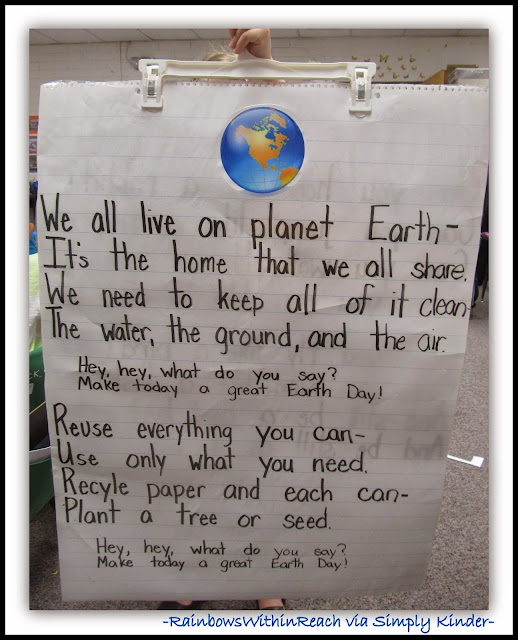 We all live on planet Earth-
It's the home that we all share.
We need to keep all of it clean-
The water, the ground, and the air.
Hey, hey, what do you say?
Make today a great Earth Day!
Reuse everything you can-
Use only what you need.
Recyle paper and each can-
Plant a tree or seed.
Hey, hey, what do you say?
Make today a great Earth Day!
-RainbowsWithinReach via Simply Kinder-